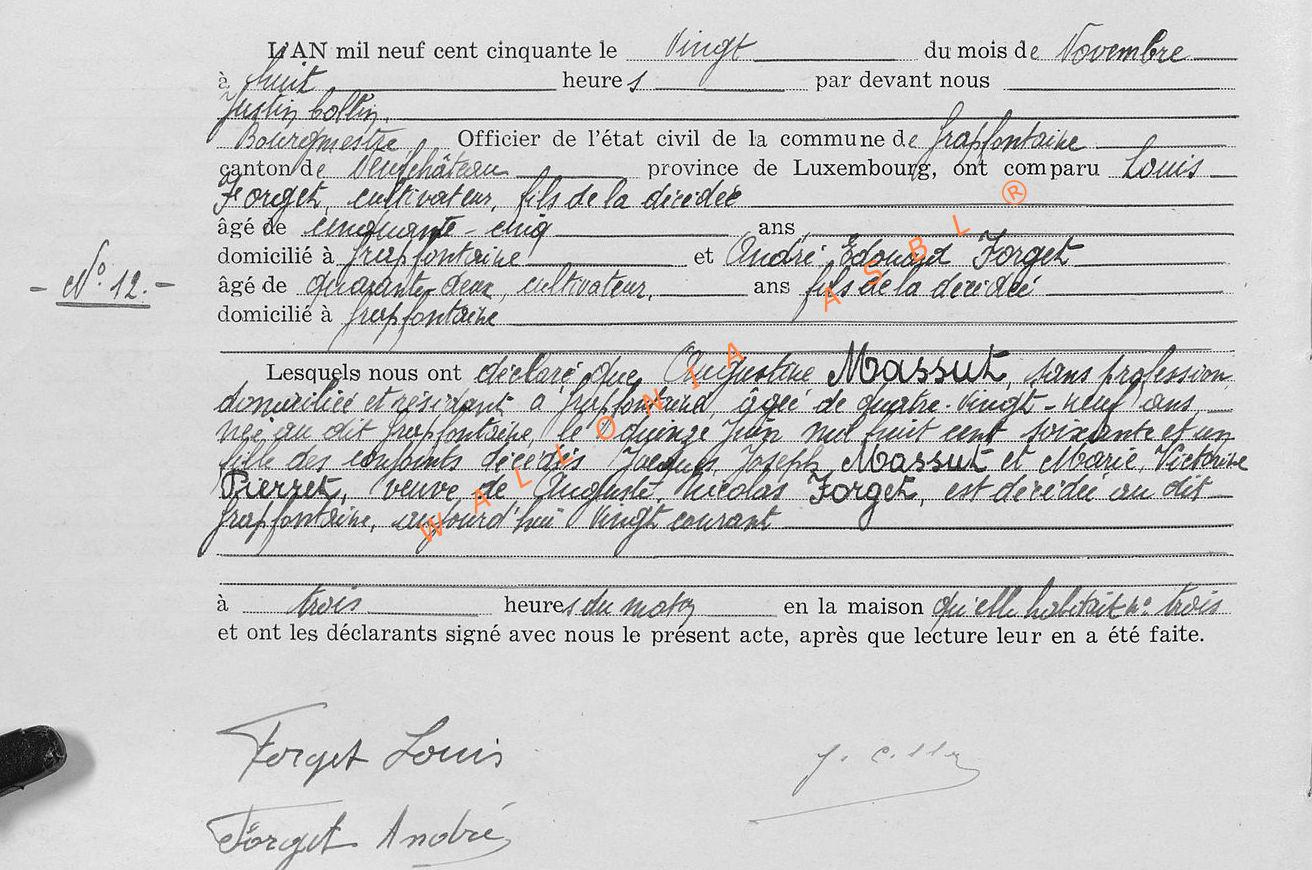 L'AN mil neuf cent cinquante le vingt du mois de Novembre
à huit heures par devant nous
Justin Collin,
Bourgmestre Officier de l'état civil de la commune de Grapfontaine
canton de Neufchâteau province de Luxembourg, ont comparu Louis
Forget, cultivateur, fils de la décédée
âgé de cinquante-cinq ans
domicilié à Grapfontaine et André Edouard Forget
- No. 12. - âgé de quarante-deux, cultivateur, ans fils de la décédée
domicilié à Grapfontaine
Lesquels nous ont déclaré que Augustine Massut, sans profession,
domiciliée et résidant à Grapfontaine, âgée de quatre-vingt-neuf ans,
née au dit Grapfontaine, le quinze Juin mil huit cent soixante et un
fille des conjoints décédés Jacques, Joseph Massut et Marie, Victorine
Pierret, veuve de Auguste, Nicolas Forget, est décédée au dit
Grapfontaine, aujourd'hui vingt courant
à trois heures du matin en la maison qu'elle habitait no. trois
et ont les déclarants signé avec nous le présent acte, après que lecture leur en a été faite.
Forget Louis
J. Collin
Forget André
WALLONIA ASBL ®